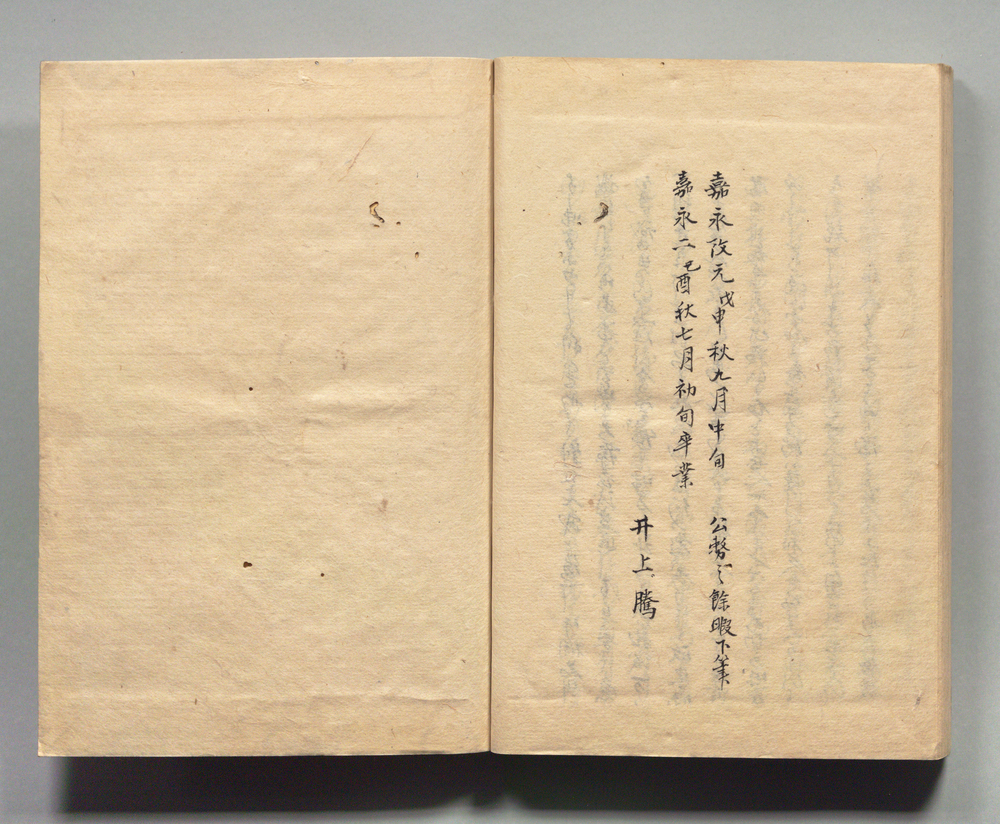 嘉永改元戊申秋九月中旬 公務之餘暇下筆
嘉永二己酉秋七月初旬卒業
井上騰